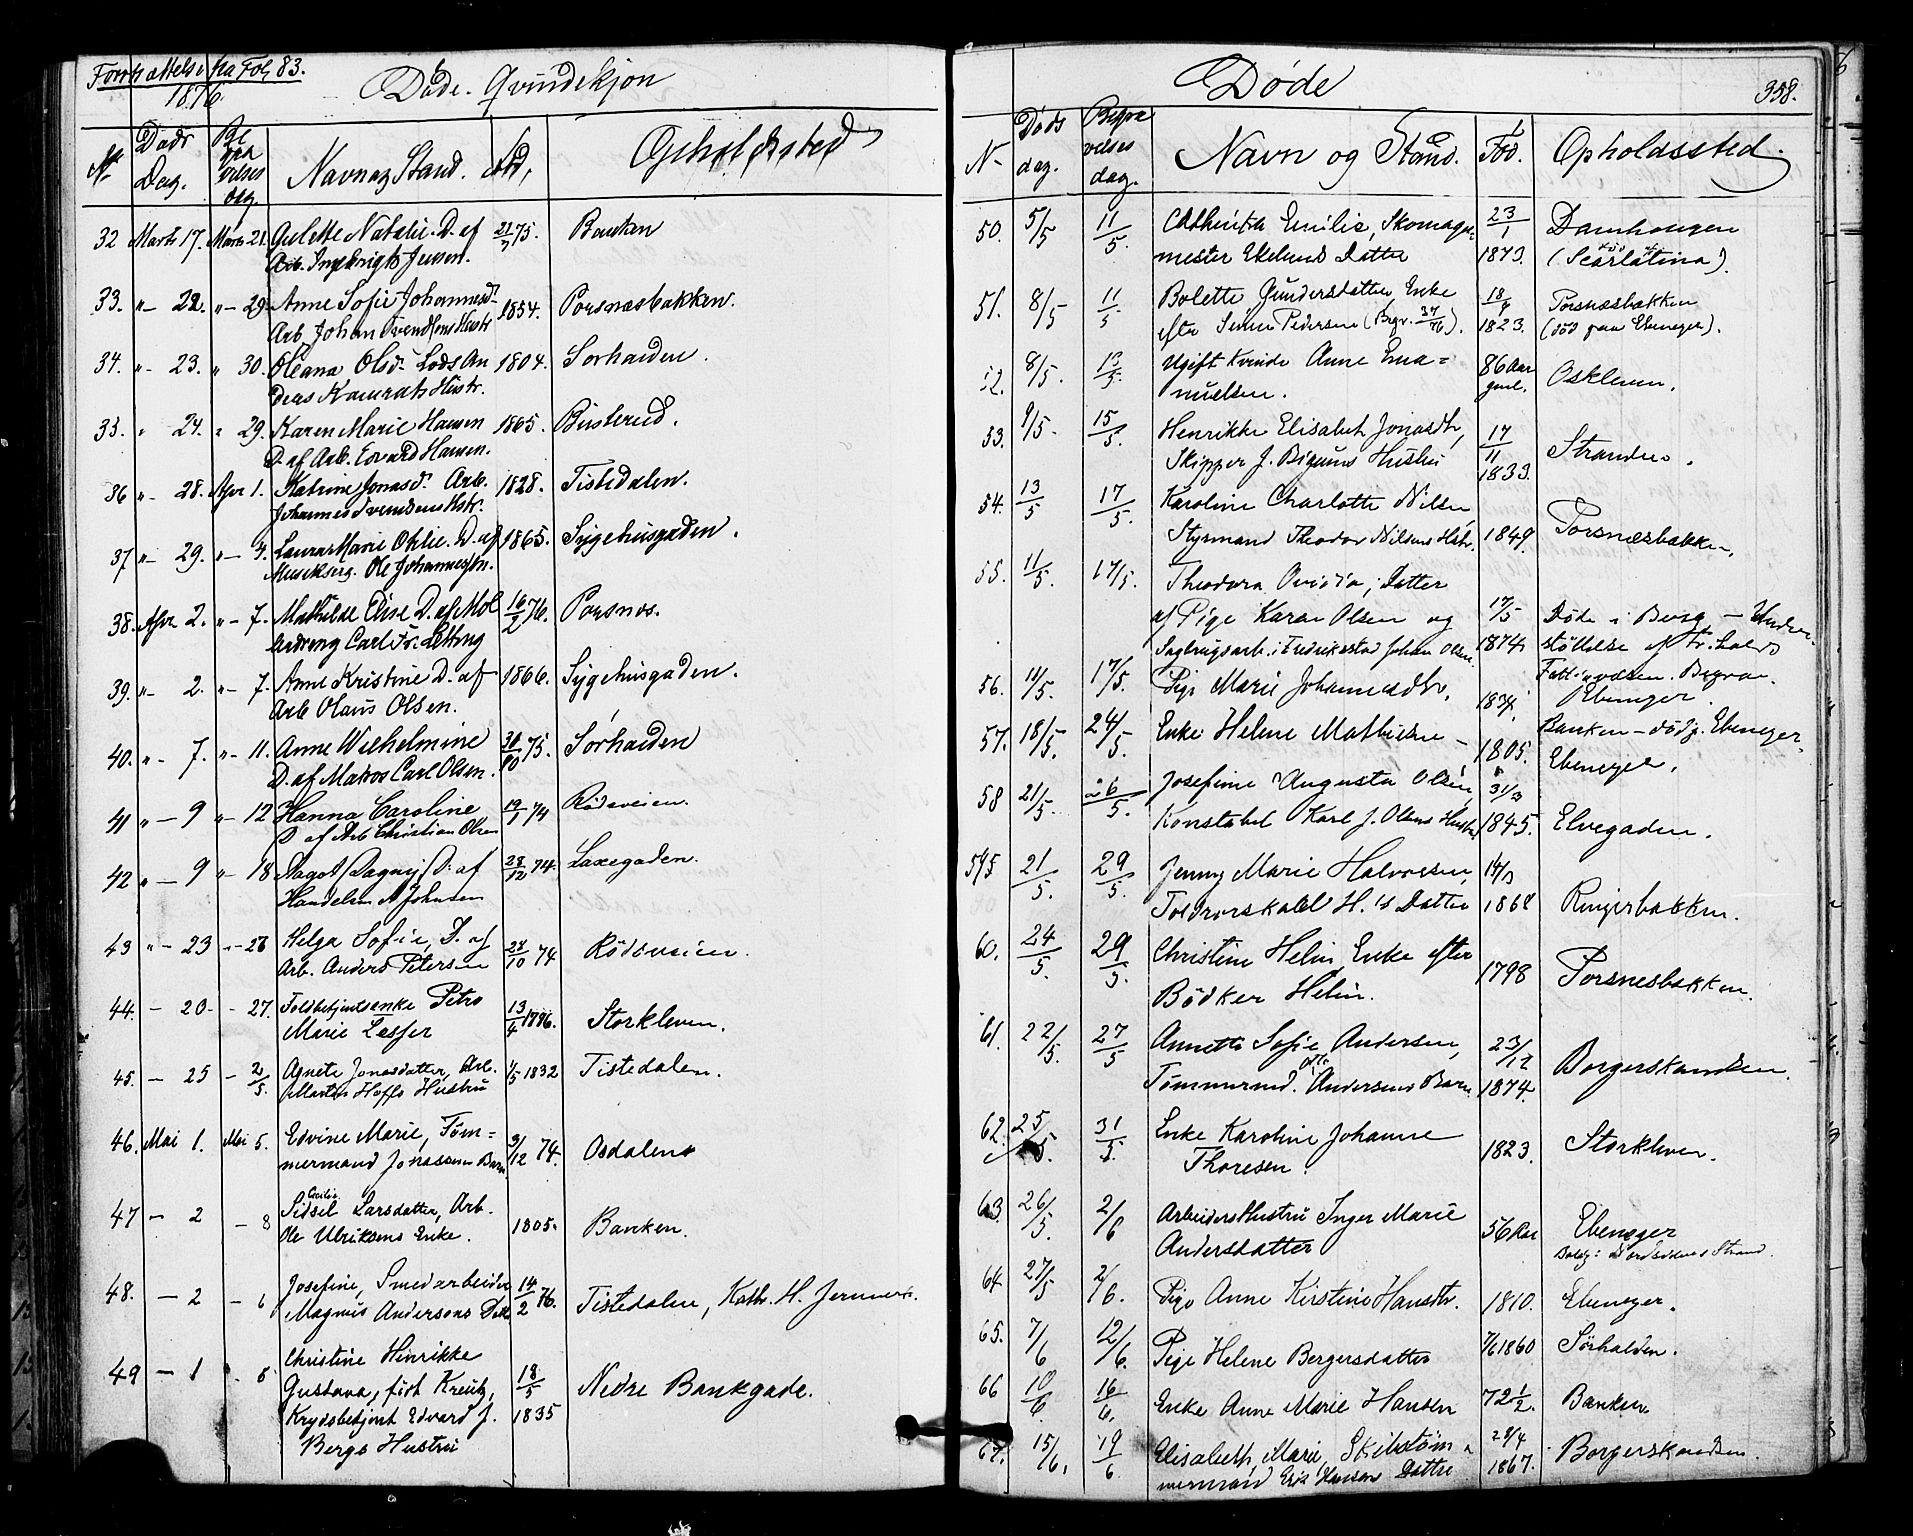 Fortsættelse fra Fol 83.
1876.
Døde. Qvindekjøn
No Døds Dag. Begravelses dag. Navn og Stand. Fød, Opholdssted
32 Marts 17. Marts 21. Gulette Natalie. D. af 21/7 75. Banken
Arb. Ingebrigt Jensen.
33. " - 22. " - 29. Anne Sofie Johannesd. 1854. Porsnæsbakken.
Arb. Johan Svendsens Hustr
34. " - 23. " 30. Oleana Olsd. Lods An 1804. Sorhalden.
ders Kamrats Hustr.
35. " 24. " 29. Karen Marie Hansen 1865. Busterud.
D. af Arb. Edvard Hansen.
36 " - 28. Apr 1. Katrine Jonasd. Arb. 1828. Tistedalen.
Johannes Svendsens Hstr.
37 " - 29. " - 4. Laura Marie Othlie. D. af 1865. Sygehusgaden.
Musikserg. Ole Johannesen.
38. Apr 2. " - 7. Mathilde Elise D. af Møl 16/2 76. Porsnes.
lerdreng Carl Fr.
39. " - 2. " - 7. Anne Kristine D. af 1866. Sygehusgaden.
Arb Olaus Olsen.
40. " - 7. " - 11. Anne Wilhelmine 30/10 75. Sørhalden
D. af Matros Carl Olsen.
41 " - 9 " - 12 Hanna Caroline 19/1 74 Rødsveien.
D af Arb Christian Olsen
42 " - 9 " - 18 Dagot (Dagny) D. af 28/12 74. Laxegaden.
Handelsm A Johnsen
43 " - 23 " - 28 Helga Sofie, D. af 28/10 74 Rödsveien.
Arb. Anders Petersen
44. - 20 - - 27. Toldbetjentsenke Petro 13/4 1796. Storkleven.
Marie Lesser
45. - 25 - 2/5 Agnete Jonasdatter, Arb. 1/5 1832 Tistedalen.
Martin Hoffs Hustru
46. Mai 1. Mai 5. Edvine Marie, Töm= 3/12 74. Osdalens
mermand Jonassens Barn
47 - 2 - 8 Sidsel Cecilie Larsdatter, Arb. 1805. Banken.
Ole Ulriksens Enke.
48. - 2 - 6 Josefine, Smedarbeider 14/2 76. Tistedalen, Kathr. H.
Magnus Andersens Datt
49 - 1 - 6 Christine Hinrikke 18/5 1835 Nedre Bankgade.
Gustava, født Kreutz,
Krydsbetjent Edvard J.
Bergs Hustru
Døde
358.
N- Døds dag. Begravelses dag. Navn og Stand. Fød. Opholdssted.
50. 5/5 11/5 Cathinka Emilie, Skomager= 23/1 1873. Damhougen
mester Ekelund Datter (Scarlatina).
51. 8/5 11/5 Bolette Gundersdatter, Enke 18/9 1823. Porsnæsbakken
efter Simen Pedersen (Begr. 37/76). (død paa Ebenezer).
52. 8/5. 12/5. Ugift Kvinde Anne Ema= 86 Aar Oskleven.
nuelsen. gml.
53. 9/5. 15/5. Henrikke Elisabet Jonasdtr, 17/11 1833. Stranden.
Skipper J. Bigums Hustru
54. 13/5 17/5. Karoline Charlotte Nilsen, 1849. Torsnæsbakken,
Styrmand Theodor Nilsens Hstr.
55. 11/5. 17/5. Theodora Ovidia, Datter
af Pige Karen Olsen og 17/5 1874 Døde i Berg - Under-
Sagbrugsarb. i Fredrikstad Johan Olsen støttelse af Fr.halds
56. 11/5. 17/5. Pige Marie Johannesdtr. Fattigvæsen. Begrav.
Ebenezer.
57. 18/5. 24/5. Enke Helene Mathisen - 1805. Banken - død p. Ebenezer.
Ebenezer.
58 21/5. 26/5. Josefine Augusta Olsen, 31/3 1845. Elvegaden.
Konstabel Karl J. Olsens Hustr
59 21/5. 29/5. Jenny Marie Halvorsen, 14/3 1868 Ringerbakken.
Toldrorskarl H.'s Datter
60. 24/5. 29/5. Christine Helin Enke efter 1798 Torsnesbakken.
Bödker Helin.
61. 22/5. 27/5 Annette Sofie Andersen, 23/12 1874. Borgerskandsen.
Tömmermd. Otto Andersens Barn.
62. 25/5. 31/5. Enke Karoline Johanne 1823. Storkleven.
Thoresen.
63. 26/5. 2/6 Arbeiders Hustru Inger Marie 56 Aar Ebenezer
Andersdatter Bolig: Nordsidens Strand.
64. 27/5 2/6. Pige Anne Kirstine Hansdtr. 1810. Ebenezer.
65. 7/6 12/6. Pige Helene Bergersdatter 7/6 1860 Sørhalden.
66 10/6 16/6. Enke Anne Marie Hansen 72 1/2. Banken
67. 15/6. 19/6 Elisabeth Marie, Skibstöm= 28/4 1867. Borgerskandsen.
mermand Erik Hansens Dattre